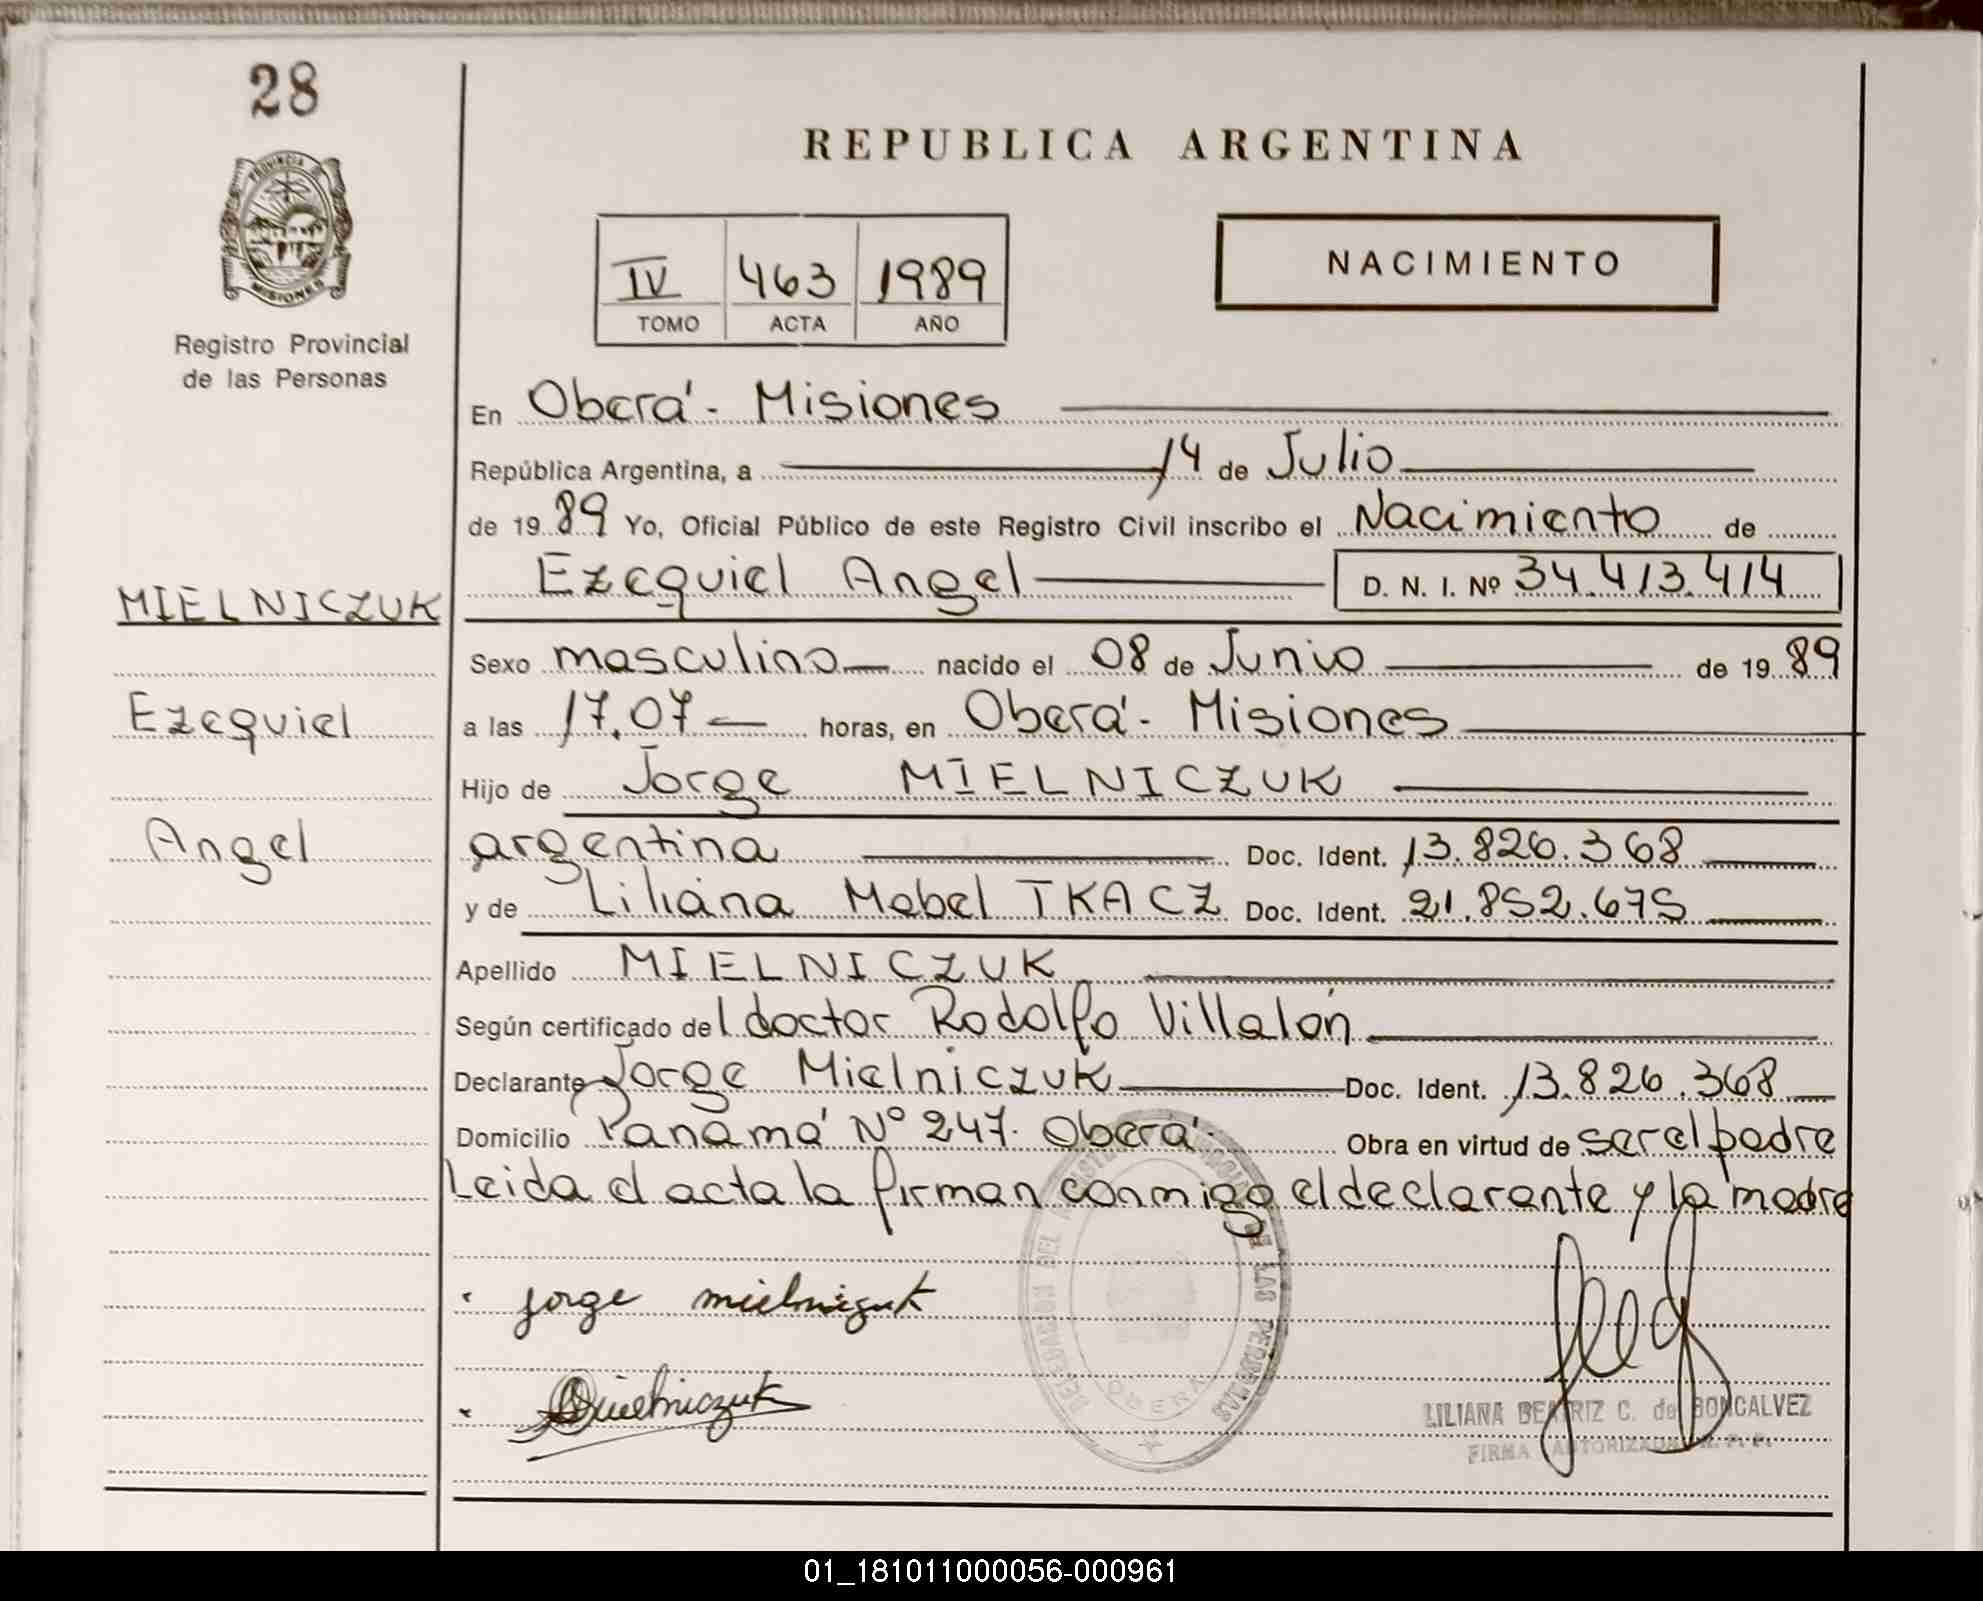 28
PROVINCIA DE
MISIONES
Registro Provincial
de las Personas
REPUBLICA ARGENTINA
IV 463 1989
TOMO ACTA AÑO
NACIMIENTO
En Oberá - Misiones
República Argentina, a 14 de Julio
de 1989 Yo, Oficial Público de este Registro Civil inscribo el Nacimiento de
Ezequiel Angel D. N. I. Nº 34.413.414
MIELNICZUK
Ezequiel
Angel
Sexo masculino nacido el 08 de Junio de 1989
a las 17.07 horas, en Oberá - Misiones
Hijo de Jorge MIELNICZUK
argentina Doc. Ident. 13.826.368
y de Liliana Mabel TKACZ Doc. Ident. 21.852.675
Apellido MIELNICZUK
Según certificado del doctor Rodolfo Villalón
Declarante Jorge Mielniczuk Doc. Ident. 13.826.368
Domicilio Panamá Nº 247. Oberá. Obra en virtud de ser el padre
Leida el acta la firman conmigo el declarante y la madre
jorge mielniczuk
Mielniczuk
DELEGACION DEL REGISTRO PROVINCIAL DE LAS PERSONAS
OBERA
LILIANA BEATRIZ C. de GONCALVEZ
FIRMA AUTORIZADA R. P. P.
01_181011000056-000961